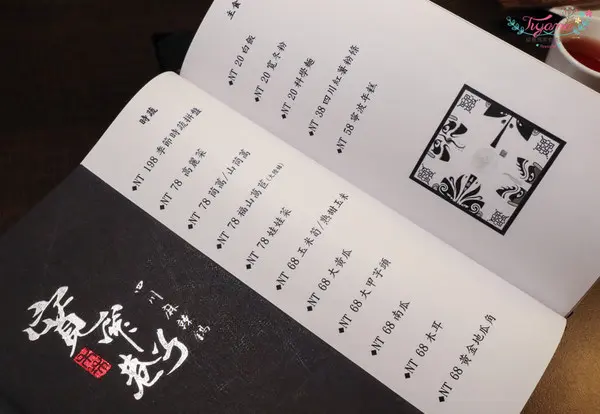 主食
◆NT 20 白飯
◆NT 20 寬冬粉
◆NT 20 科學麵
◆NT 38 四川紅薯粉條
◆NT 58 寧波年糕
時蔬
◆NT 198 季節時蔬拼盤
◆NT 78 高麗菜
◆NT 78 茼蒿/山茼蒿
◆NT 78 福山萵苣(大陸妹)
◆NT 78 娃娃菜
◆NT 68 玉米筍/熟甜玉米
◆NT 68 大黃瓜
◆NT 68 大甲芋頭
◆NT 68 南瓜
◆NT 68 木耳
◆NT 68 黃金地瓜角
四川麻辣鍋